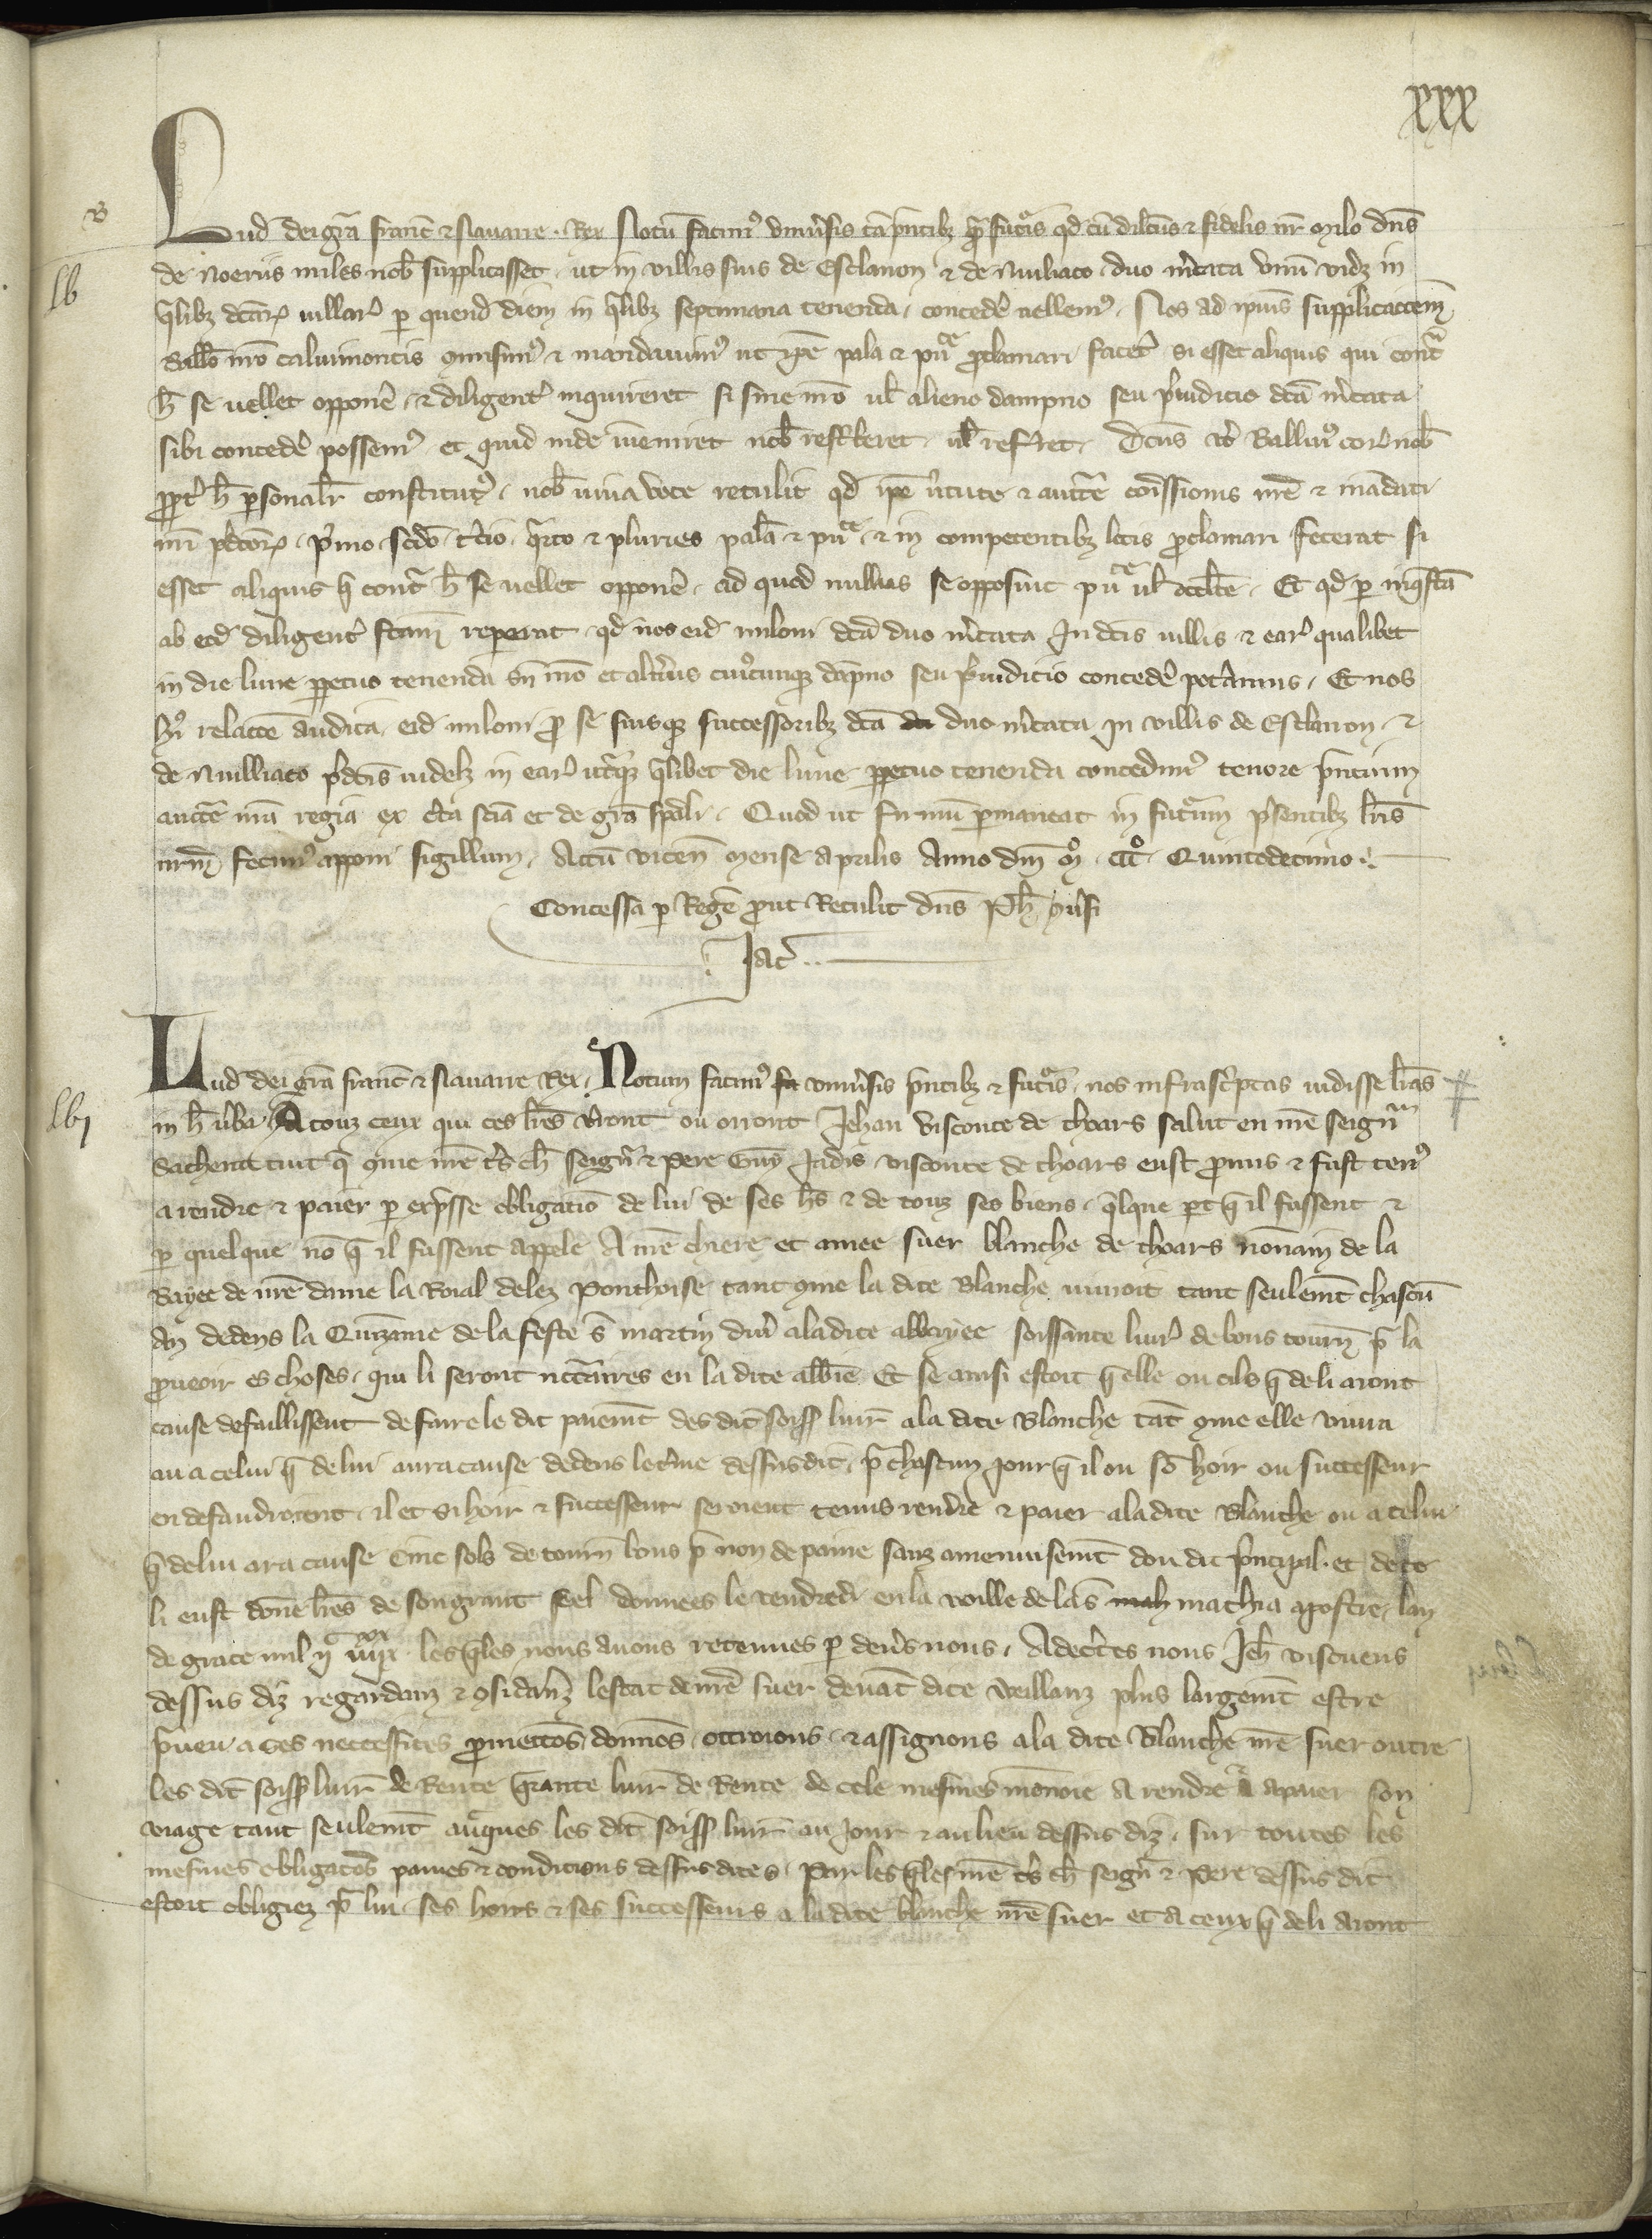 xxx
v
Lud dei gra franc̃ ⁊ Nauarre Rex Notũ facimꝰ vniũsis tã p̃ntibꝫ q̃ futur̃ qd cũ dilcũs ⁊ fidelis nr̃ Milo dñs
lv
de Noeriis miles nob̃ supplicasset, ut in villis suis de Esclanon ⁊ de Nuilliaco duo m̃cata vnũ vidꝫ in
q̃libꝫ dcãrꝝ villarꝝ p quend̃ diem in q̃libꝫ septimana tenenda, conced̃e vellemꝰ. Nos ad ipius supplicacõem
Ballo nr̃o caluimontis cõmisimꝰ ⁊ mandauimꝰ ut ip̃e pala ⁊ pup̃ce p̃clamari facet̃ si esset aliquis qui cont̃
h̃ se uellet oppoñe, ⁊ diligent̃ inquireret si sine nr̃o ul̃ alieno dampno seu p̃iudicio dcã m̃cata
sibi conced̃e possemꝰ et quid inde iueniret nob̃ resc̃beret, ul̃ refr̃ret. Dcũs v̊o Balliuꝰ corã nob̃
ppt̃ h̃ psonalr̃ constitutꝰ, nob̃ uiua voce retulit qd ip̃e ũtute ⁊ auctte cõissionis nr̃e ⁊ mãdati
nr̃i p̃dcõrꝝ, p̃mo, scdo, t̃cio, q̃rto ⁊ pluries palã ⁊ pup̃ce, ⁊ in competentibꝫ locis p̃clamari fecerat si
esset aliquis q̃ cont̃ h̃ se uellet oppoñe, ad quod nullus se opposuit pup̃ce ul̃ occl̃te. Et qd p inq̃stã
ab eod̃ diligent̃ fcãm repererat, qd nos eid̃ miloni dcã duo m̃cata in dcĩs villis ⁊ earꝝ qualibet
in die lune ppetuo tenenda sñ nr̃o et alt̃ius cuiꝰcunqꝫ dãpno seu p̃iudicio conced̃e pot̃amus, Et nos
hꝰi relacõe audita, eid̃ miloni p̃ se suisqꝫ successoribꝫ dcã duo m̃cata in villis de Esclanon, ⁊
de Nuilliaco p̃dcĩs uidelꝫ in earꝝ q̃libet die lune ppetuo tenenda concedimꝰ tenore p̃ntium
auctte nr̃a regia ex c̃ta scĩa et de gr̃a sp̃ali. Quod ut firmũ pmaneat in futurum p̃sentibꝫ lr̃is
nr̃m fecimꝰ apponi sigillum. Actũ vicen̄ Mense Aprilis Anno dnĩ mº. cccº. Quintodecimo
Concessa p Regẽ put Retulit dñs Ph̃
Jac̃
Lud dei gr̃a franc̃ ⁊ Nauarre Rex, Notum facimꝰ vniũsis p̃ntibꝫ ⁊ futur̃, nos infrasc̃ptas uidisse lr̃as
lvi
in h̃ ũba, A touz ceux qui ces lr̃es ũront ou orront Jehan visconte de thoars salut en nr̃e seign̄
Sachent tuit q̃ 9me nr̃e t̃s ch̃ seign̄ ⁊ Pere Guy Jadis visconte de thoars eust pmis ⁊ fust tenꝰ
a rendre ⁊ paier p exp̃sse obligatiõ de lui de ses hr̃s ⁊ de touz ses biens, q̃lque p̃t q̃ il fussent ⁊
p quelque nõ q̃ il fussent appele A nr̃e chiere et amee suer blanche de thoars nõnain de la
Bayee de nr̃e dame la Roial delez Ponthoise tant 9me la dite Blanche uiuroit tant seulemt̃ chascũ
An dedens la Quizanie de la feste S martin diũ ala dite abbayee soissante liur̃ de bons tourñ p̃ la
pueoir es choses, qui li seront nccãires en la dite abbie Et se ainsi estoit q̃ elle ou cils q̃ de li aront
cause defaillissent de faire le dit paiemt̃ des dit̃ soiss̃ liur̃ a la dite Blanche tãt 9me elle viura
au a celui q̃ de lui aura cause dedens le t̃me dessusdit, p̃ chascun jour q̃ il ou sõ hoir ou successeur
en defaudroient, il et si hoir ⁊ successeur seroient tenus rendre ⁊ paier ala dite Blanche ou a celui
q̃ de lui ara cause Cinc sols de tourñ bons p̃ non de paine sanz amenuisemt̃ dou dit p̃ncipal. et de ce
li eust done lr̃es de son grant seel donnees le vendredi en la voille de la S mathia apostre, lan
de grace mil les q̃les nous auons retenues p deũs nous, Adec̃tes nous Jeh̃ viscuens
dessus diz regardanz ⁊ 9sidanz lestat de nr̃e suer deuãt dite Veillanz plus largemt̃ estre
p̃ueu a ces necessites pmettõs donnõs, ottroions, ⁊ assignons a la dite Blanche nr̃e suer outre
les dit̃ soiss̃ liur̃ de Rente q̃rante liur̃ de Rente de cele mesmes mõnoie A rendre ⁊ a paier son
viage tant seulemt̃ auq̃ques les dit̃ soiss̃ liur̃ au jour ⁊ au lieu dessus diz, sur toutes les
mesmes obligatõs paines ⁊ condicions dessus dites, Par les q̃les nr̃e t̃s ch̃ seign̄ ⁊ Pere dessus dit
estoit obligiez p̃ lui, ses hoirs ⁊ ses successeurs a la dite blanche nr̃e suer et a ceux q̃ de li aront